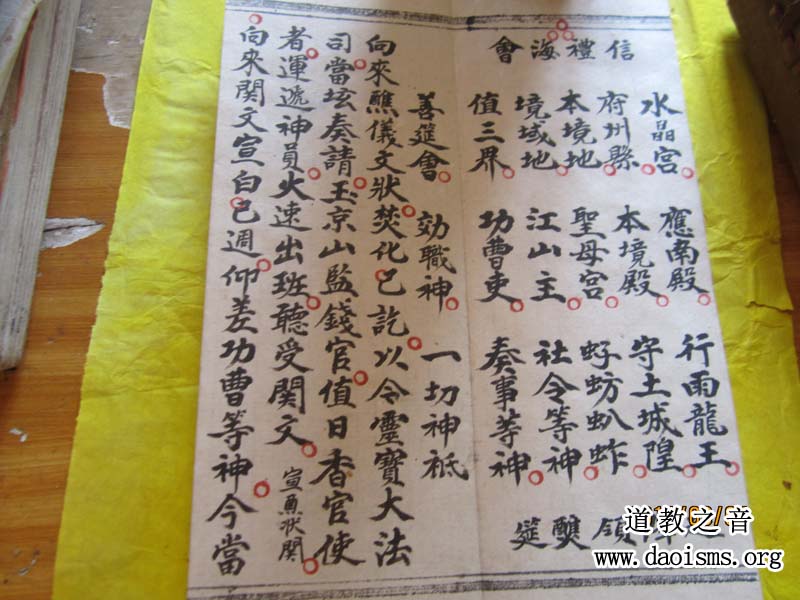 信禮海會
水晶宮 應南殿 行雨龍王
府州縣 本境殿 守土城隍
本境地 聖母宮 虸蚄叭蚱
境域地 江山主 社令等神
值三界 功曹吏 奏事等神
善筵會 効職神 一切神祇
領醮筵
向來醮儀文狀焚化已訖以令靈寶大法
司當垓奏請玉京山監錢官值日香官使
者運遞神員火速出班聽受関文 宣魚狀関
向來関文宣白已週仰差功曹等神今當
道教之音
www.daoisms.org